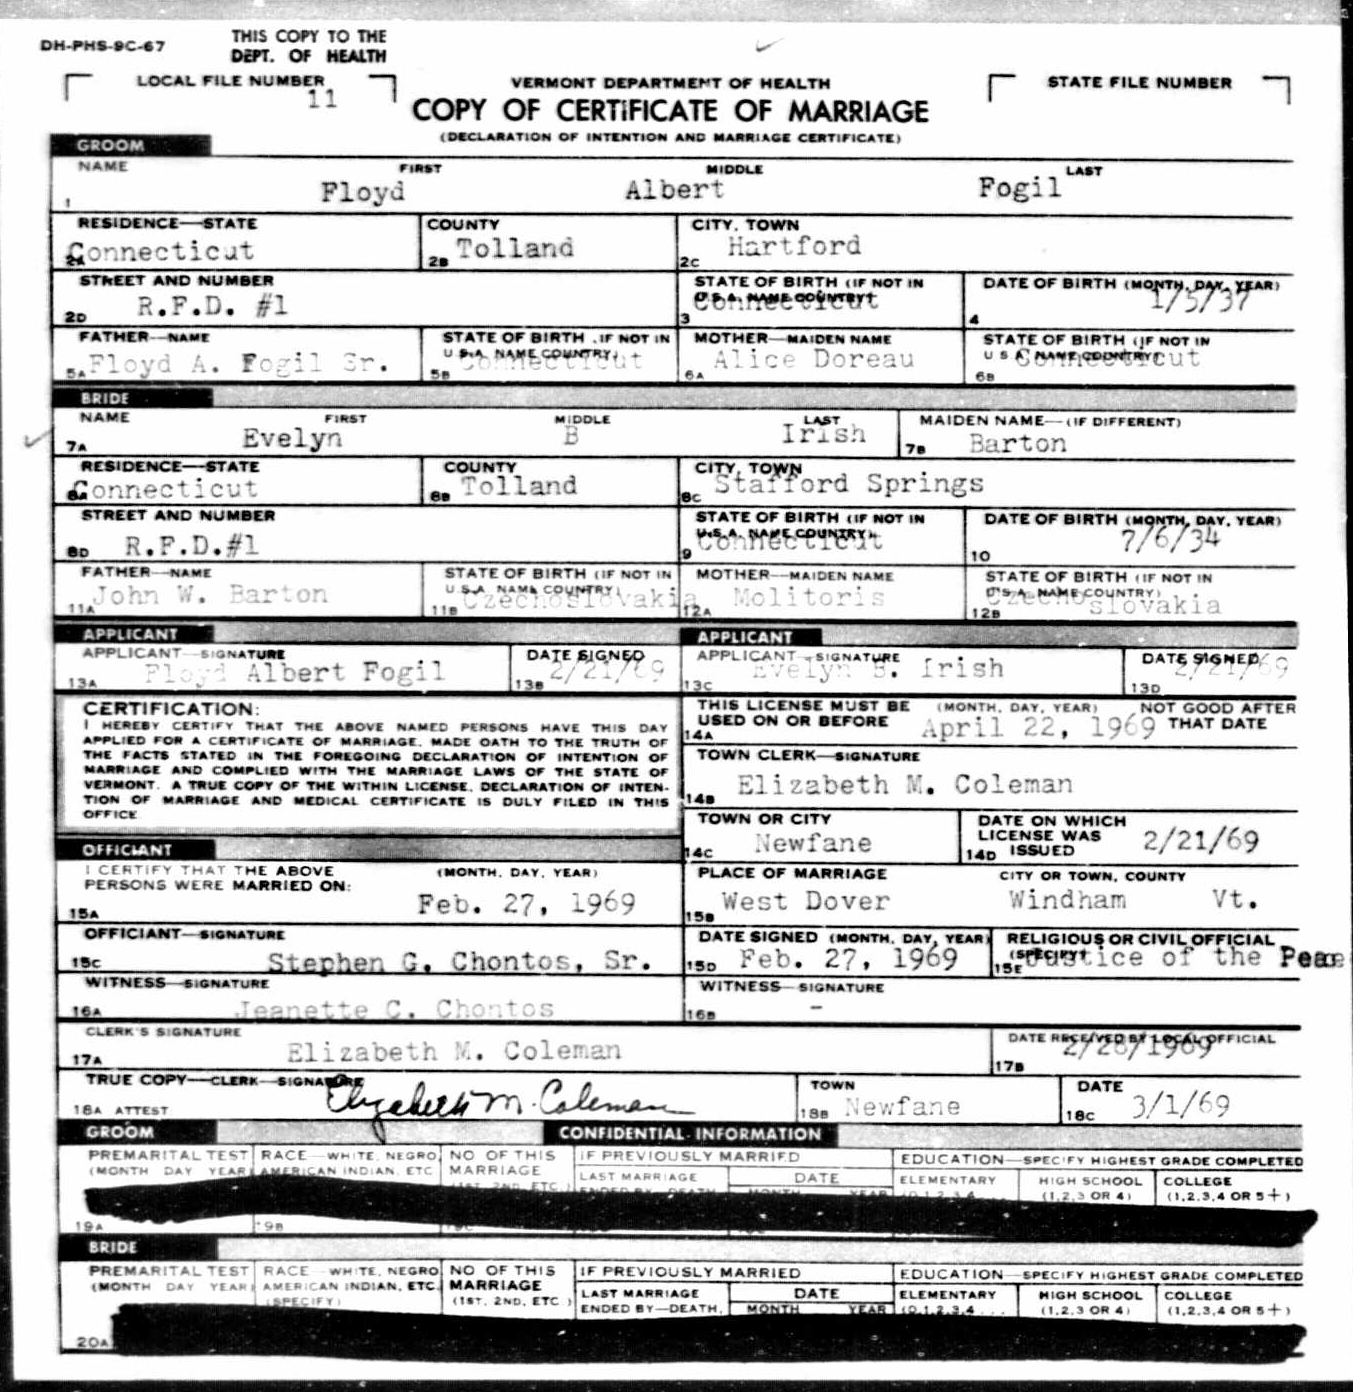 DH-PHS-9C-67
THIS COPY TO THE
DEPT. OF HEALTH
LOCAL FILE NUMBER
11
VERMONT DEPARTMENT OF HEALTH
COPY OF CERTIFICATE OF MARRIAGE
(DECLARATION OF INTENTION AND MARRIAGE CERTIFICATE)
STATE FILE NUMBER
GROOM
NAME FIRST MIDDLE LAST
1 Floyd Albert Fogil
RESIDENCE—STATE COUNTY CITY, TOWN
2A Connecticut 2B Tolland 2C Hartford
STREET AND NUMBER STATE OF BIRTH (IF NOT IN U.S.A. NAME COUNTRY) DATE OF BIRTH (MONTH, DAY, YEAR)
2D R.F.D. #1 3 Connecticut 4 1/5/37
FATHER—NAME STATE OF BIRTH (IF NOT IN U.S.A. NAME COUNTRY) MOTHER—MAIDEN NAME STATE OF BIRTH (IF NOT IN U S A NAME COUNTRY)
5A Floyd A. Fogil Sr. 5B Connecticut 6A Alice Doreau 6B Connecticut
BRIDE
NAME FIRST MIDDLE LAST MAIDEN NAME—(IF DIFFERENT)
7A Evelyn B Irish 7B Barton
RESIDENCE—STATE COUNTY CITY, TOWN
8A Connecticut 8B Tolland 8C Stafford Springs
STREET AND NUMBER STATE OF BIRTH (IF NOT IN U.S.A. NAME COUNTRY) DATE OF BIRTH (MONTH, DAY, YEAR)
8D R.F.D.#1 9 Connecticut 10 7/6/34
FATHER—NAME STATE OF BIRTH (IF NOT IN U.S.A. NAME COUNTRY) MOTHER—MAIDEN NAME STATE OF BIRTH (IF NOT IN U.S.A. NAME COUNTRY)
11A John W. Barton 11B Czechoslovakia 12A Molitoris 12B Czechoslovakia
APPLICANT APPLICANT
APPLICANT—SIGNATURE DATE SIGNED APPLICANT—SIGNATURE DATE SIGNED
13A Floyd Albert Fogil 13B 2/21/69 13C Evelyn B. Irish 13D 2/21/69
CERTIFICATION:
I HEREBY CERTIFY THAT THE ABOVE NAMED PERSONS HAVE THIS DAY
APPLIED FOR A CERTIFICATE OF MARRIAGE, MADE OATH TO THE TRUTH OF
THE FACTS STATED IN THE FOREGOING DECLARATION OF INTENTION OF
MARRIAGE AND COMPLIED WITH THE MARRIAGE LAWS OF THE STATE OF
VERMONT. A TRUE COPY OF THE WITHIN LICENSE, DECLARATION OF INTEN-
TION OF MARRIAGE AND MEDICAL CERTIFICATE IS DULY FILED IN THIS
OFFICE
THIS LICENSE MUST BE (MONTH, DAY, YEAR) NOT GOOD AFTER
USED ON OR BEFORE April 22, 1969 THAT DATE
14A
TOWN CLERK—SIGNATURE
14B Elizabeth M. Coleman
TOWN OR CITY DATE ON WHICH LICENSE WAS ISSUED
14C Newfane 14D 2/21/69
OFFICIANT
I CERTIFY THAT THE ABOVE (MONTH, DAY, YEAR)
PERSONS WERE MARRIED ON:
15A Feb. 27, 1969
PLACE OF MARRIAGE CITY OR TOWN, COUNTY
15B West Dover Windham Vt.
OFFICIANT—SIGNATURE DATE SIGNED (MONTH, DAY, YEAR) RELIGIOUS OR CIVIL OFFICIAL (SPECIFY)
15C Stephen G. Chontos, Sr. 15D Feb. 27, 1969 15E Justice of the Peace
WITNESS—SIGNATURE WITNESS—SIGNATURE
16A Jeanette C. Chontos 16B -
CLERK'S SIGNATURE DATE RECEIVED BY LOCAL OFFICIAL
17A Elizabeth M. Coleman 17B 2/28/1969
TRUE COPY—CLERK—SIGNATURE TOWN DATE
18A ATTEST Elizabeth M. Coleman 18B Newfane 18C 3/1/69
GROOM CONFIDENTIAL INFORMATION
PREMARITAL TEST RACE—WHITE, NEGRO, NO OF THIS IF PREVIOUSLY MARRIED EDUCATION—SPECIFY HIGHEST GRADE COMPLETED
(MONTH DAY YEAR) AMERICAN INDIAN, ETC MARRIAGE LAST MARRIAGE DATE ELEMENTARY HIGH SCHOOL COLLEGE
(1ST, 2ND, ETC.) ENDED BY—DEATH, MONTH YEAR (0,1,2,3,4 (1,2,3 OR 4) (1,2,3,4 OR 5+)
19A 19B 19C
BRIDE
PREMARITAL TEST RACE—WHITE, NEGRO NO OF THIS IF PREVIOUSLY MARRIED EDUCATION—SPECIFY HIGHEST GRADE COMPLETED
(MONTH DAY YEAR) AMERICAN INDIAN, ETC. MARRIAGE LAST MARRIAGE DATE ELEMENTARY HIGH SCHOOL COLLEGE
(SPECIFY) (1ST, 2ND, ETC.) ENDED BY—DEATH, MONTH YEAR (0,1,2,3,4 ... (1,2,3 OR 4) (1,2,3,4 OR 5+)
20A